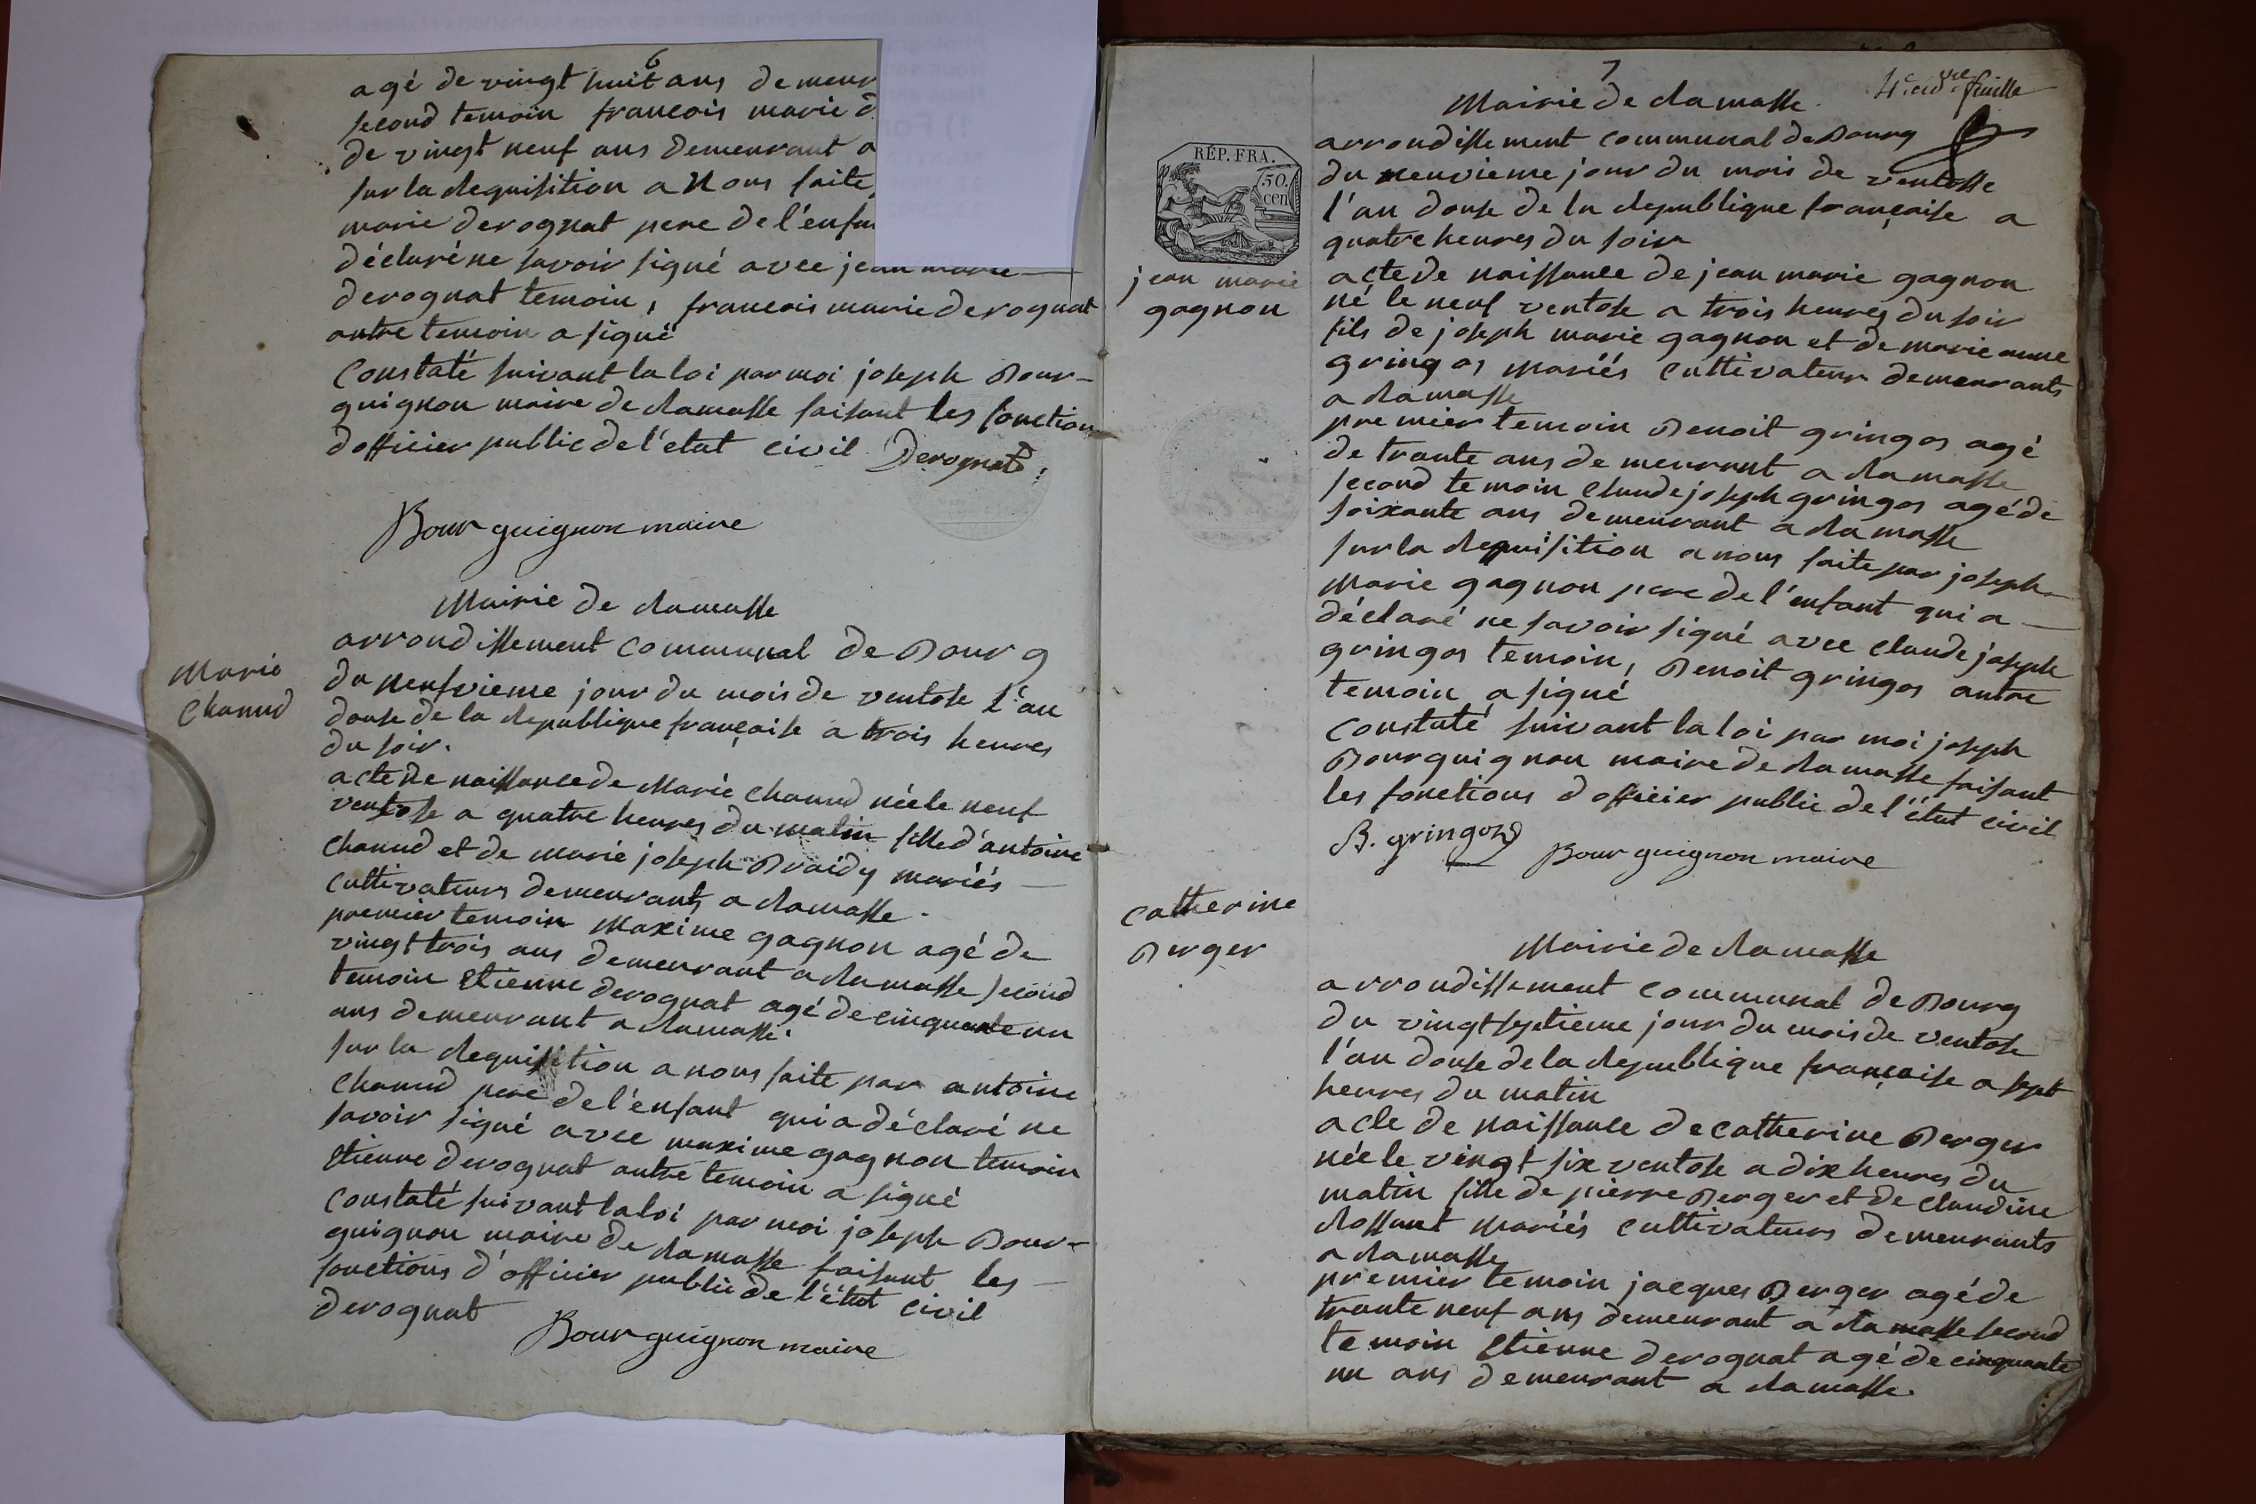 6
agé de vingt huit ans demeur
second temoin francois marie d
de vingt neuf ans demeurant a
sur la requisition a Nous faite
marie derognat pere de l'enfan
déclaré ne savoir signé avec jean marie
derognat temoin, francois marie derognat
autre temoin a signé
Constaté suivant la loi par moi joseph Bour-
guignon maire de ramasse faisant les fonction
dofficier public de l'etat civil Derognat
Bourguignon maire
Mairie de ramasse
arrondissement communal de Bourg
Marie
Chanud
du neufvieme jour du mois de ventose l'an
douse de la republique française a trois heures
du soir.
acte de naissance de Marie Chanud née le neuf
ventose a quatre heures du matin fille d'antoine
Chanud et de marie joseph Braidy mariés
cultivateurs demeurants a ramasse.
premier temoin Maxime gagnon agé de
vingt trois ans demeurant a ramasse second
temoin Etienne derognat agé de cinquante un
ans demeurant a ramasse.
sur la requisition a nous faite par antoine
Chanud pere de l'enfant qui a déclaré ne
savoir signé avec maxime gagnon temoin
Etienne derognat autre temoin a signé
Constaté suivant la loi par moi joseph Bour-
guignon maire de ramasse faisant les
fonctions d'officier public de l'état civil
derognat
Bourguignon maire
7
4e et dre feuille
Mairie de ramasse.
arrondissement communal de Bourg
RÉP. FRA.
50.
cen
du neuvieme jour du mois de ventosse
l'an douse de la republique française a
quatre heures du soir
jean marie
gagnon
acte de naissance de jean marie gagnon
né le neuf ventose a trois heures du soir
fils de joseph marie gagnon et de marie anne
gringos mariés cultivateur demeurants
a ramasse
premier temoin Benoit gringos agé
de trante ans demeurant a ramasse
second temoin Claude joseph gringos agé de
soixante ans demeurant a ramasse
sur la requisition a nous faite par joseph
Marie gagnon pere de l'enfant qui a
déclaré ne savoir signé avec claude joseph
gringos temoin, Benoit gringos autre
temoin a signé
Constaté suivant la loi par moi joseph
Bourguignon maire de ramasse faisant
les fonctions d officier public de l'état civil
B. gringoz
Bourguignon maire
Catherine
Berger
Mairie de ramasse
arrondissement communal de Bourg
du vingt septieme jour du mois de ventose
l'an douse de la republique française a sept
heures du matin
acle de naissance de catherine Berger
née le vingt six ventose a dix heures du
matin fille de pierre Berger et de claudine
rossant mariés cultivateurs demeurants
a ramasse
premier temoin jacques Berger agé de
trante neuf ans demeurant a ramasse second
temoin Etienne derognat agé de cinquante
un ans demeurant a ramasse.